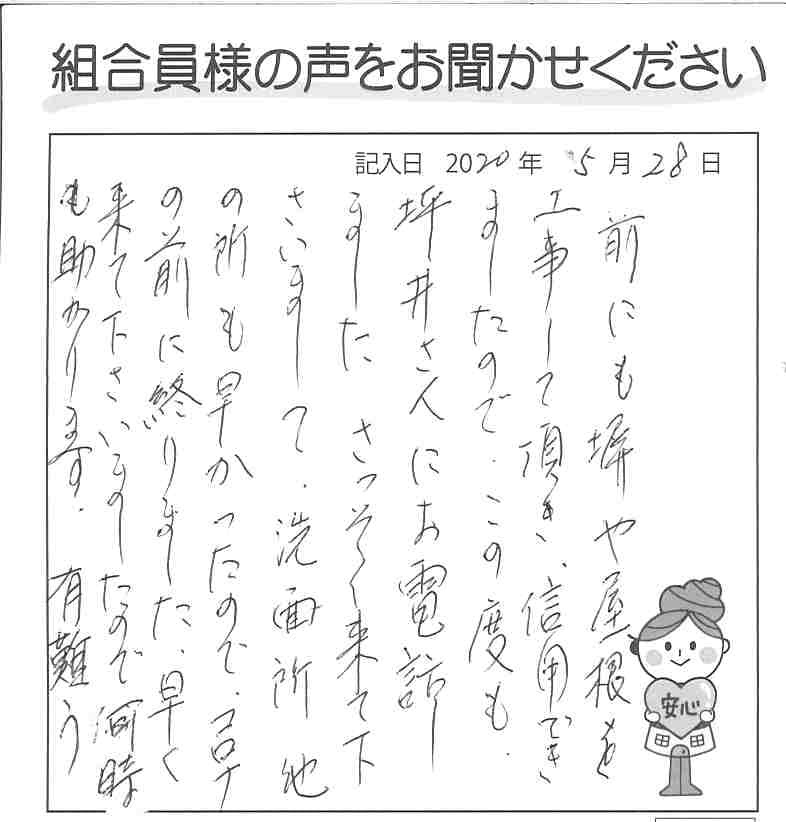 組合員様の声をお聞かせください
記入日 2020年 5月28日
前にも塀や屋根を
工事して頂き、信用でき
ましたので、この度も、
坪井さんにお電話し
ました さっそく来て下
さいまして、洗面所他
の所も早かったので、コロナ
の前に終りました、早く
来て下さいましたので何時
も助かります。有難う
安心